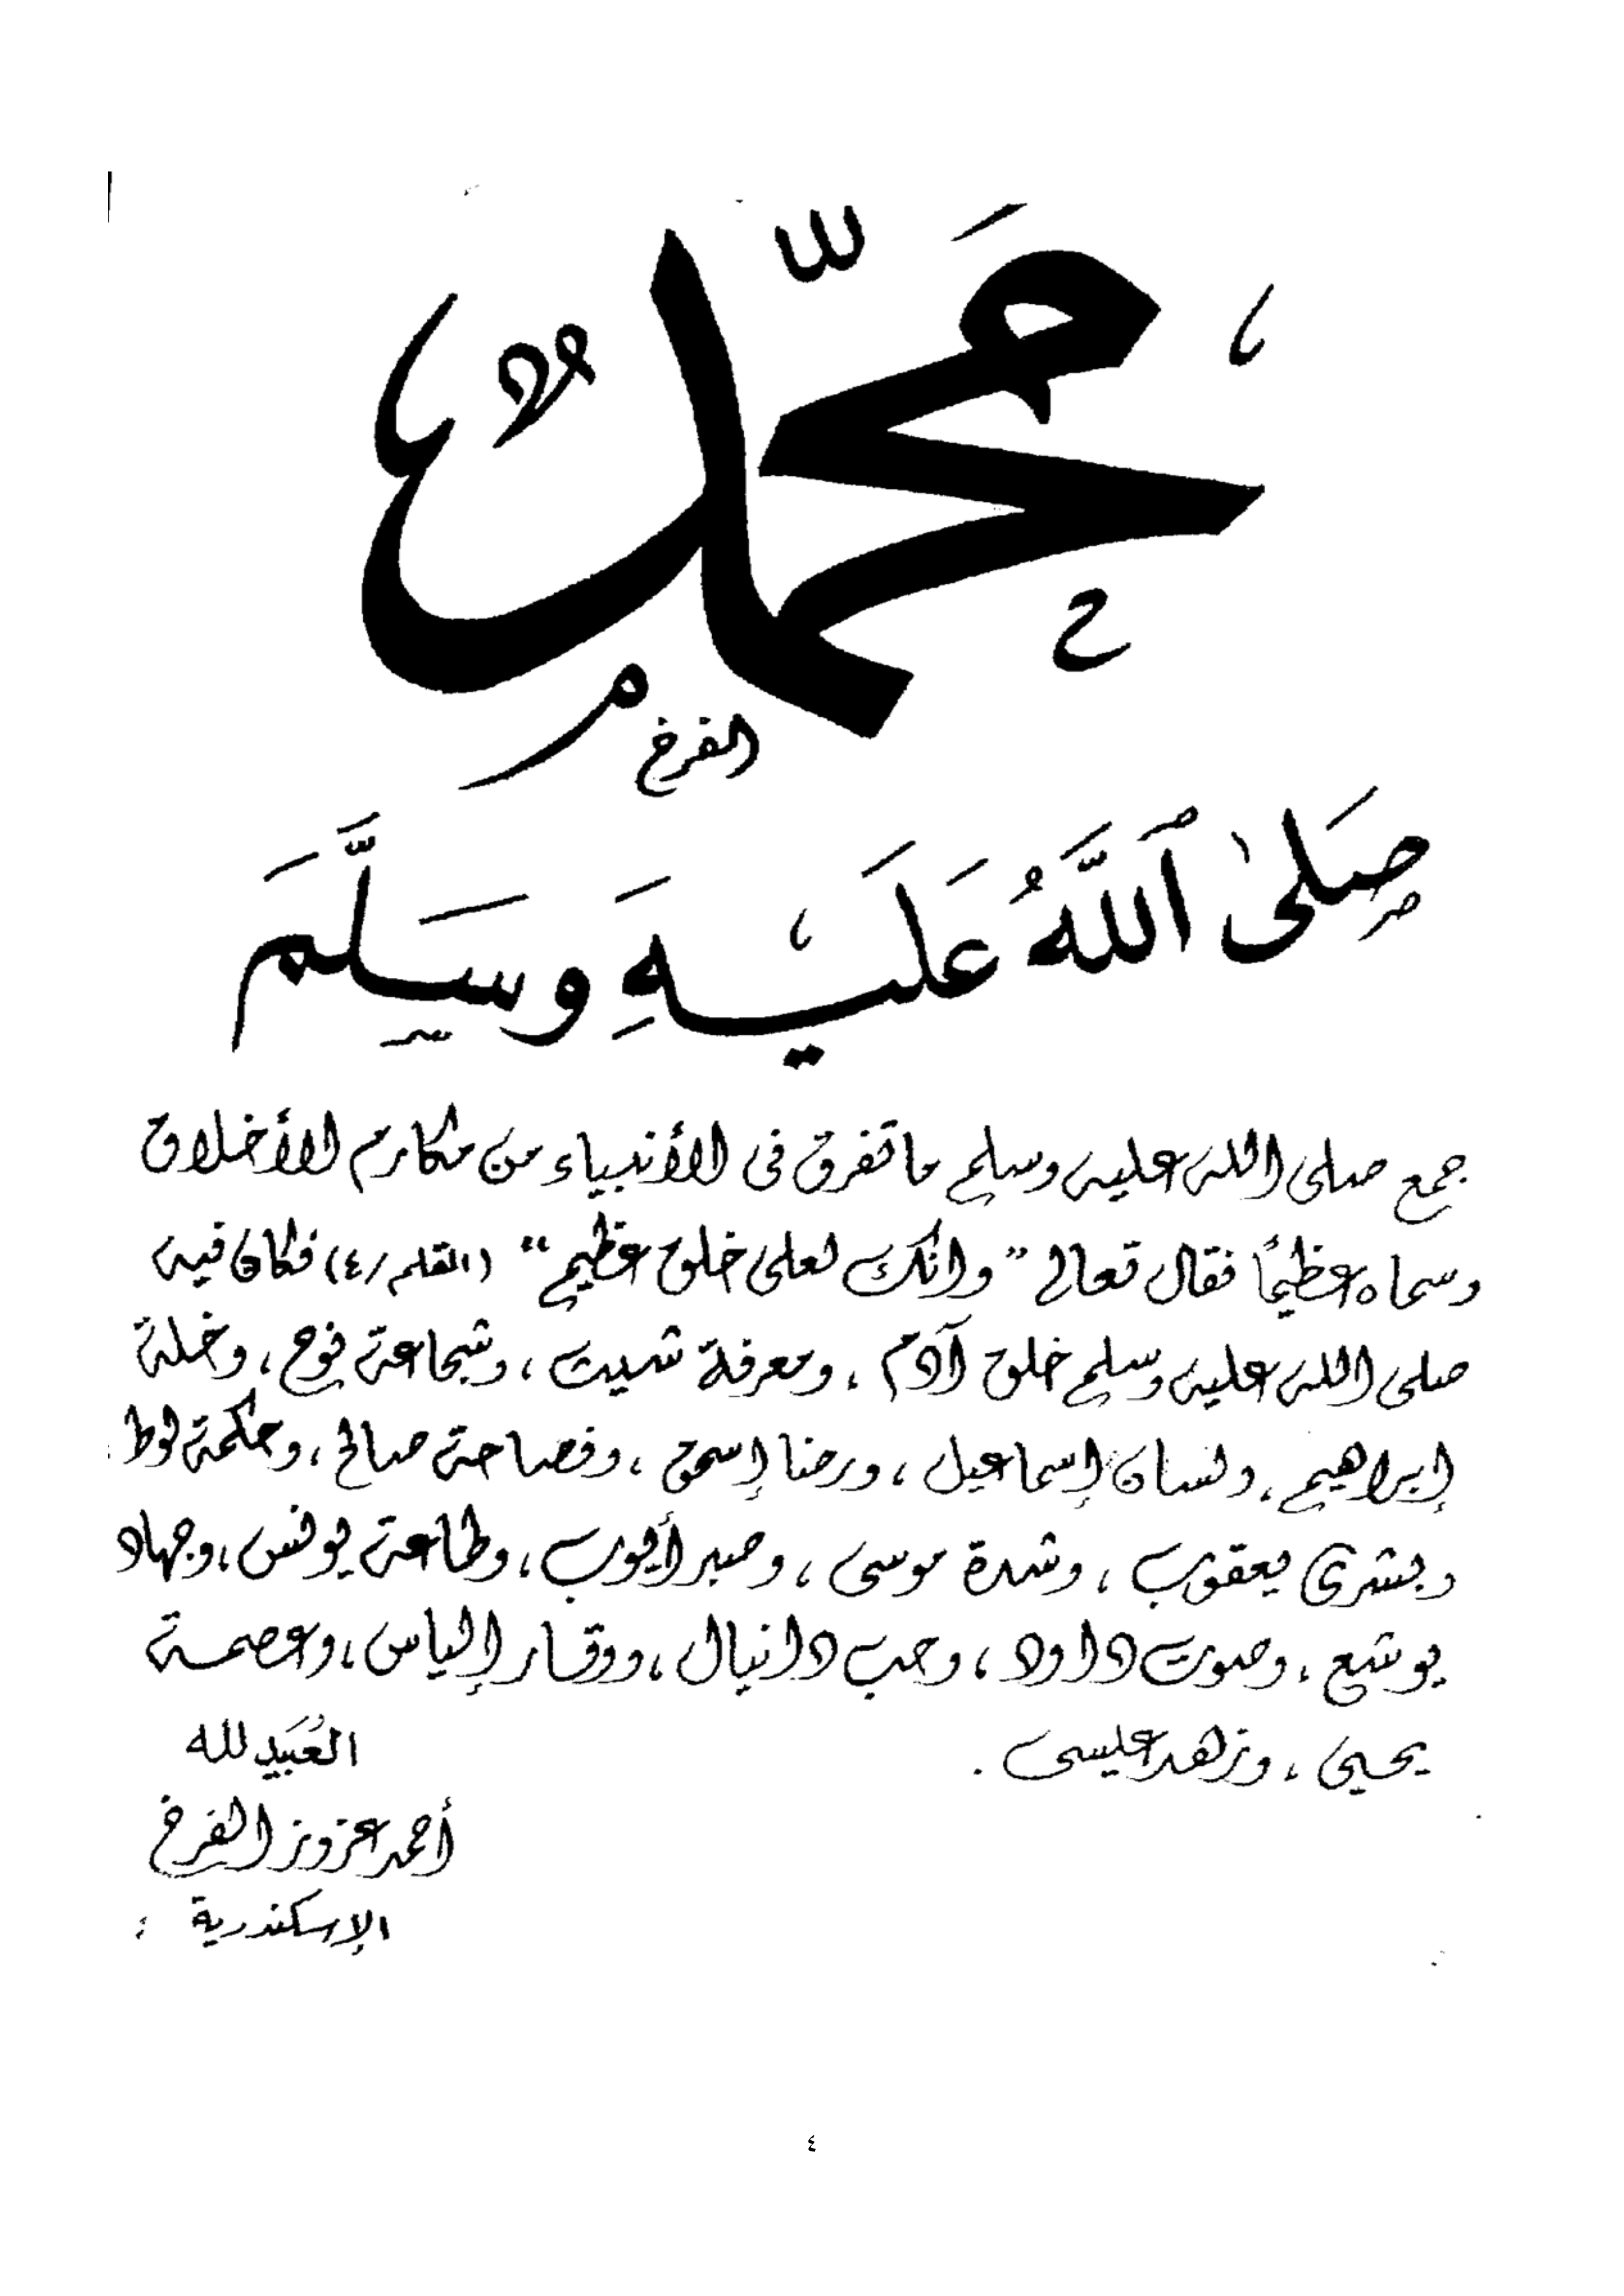 مُحَمَّدٌ
الفرخ
صَلَّى ٱللَّهُ عَلَيْهِ وَسَلَّمَ
جمع صلى الله عليه وسلم ما تفرق فى الأنبياء من مكارم الأخلاق
وسماه عظيمًا فقال تعالى "وانك لعلى خلق عظيم" (القلم/٤) فكان فيه
صلى الله عليه وسلم خلق آدم ، ومعرفة شيث ، وشجاعة نوح ، وخلة
إبراهيم ، ولسان إسماعيل ، ورضا إسحق ، وفصاحة صالح ، وحكمة لوط
وبشرى يعقوب ، وشدة موسى ، وصبر أيوب ، وطاعة يونس ، وجهاد
يوشع ، وصوت داود ، وحب دانيال ، ووقار إلياس ، وعصمة
يحيى ، وزهد عيسى .
العُبَيد لله
أحمد عزوز الفرخ
الإسكندرية
٤